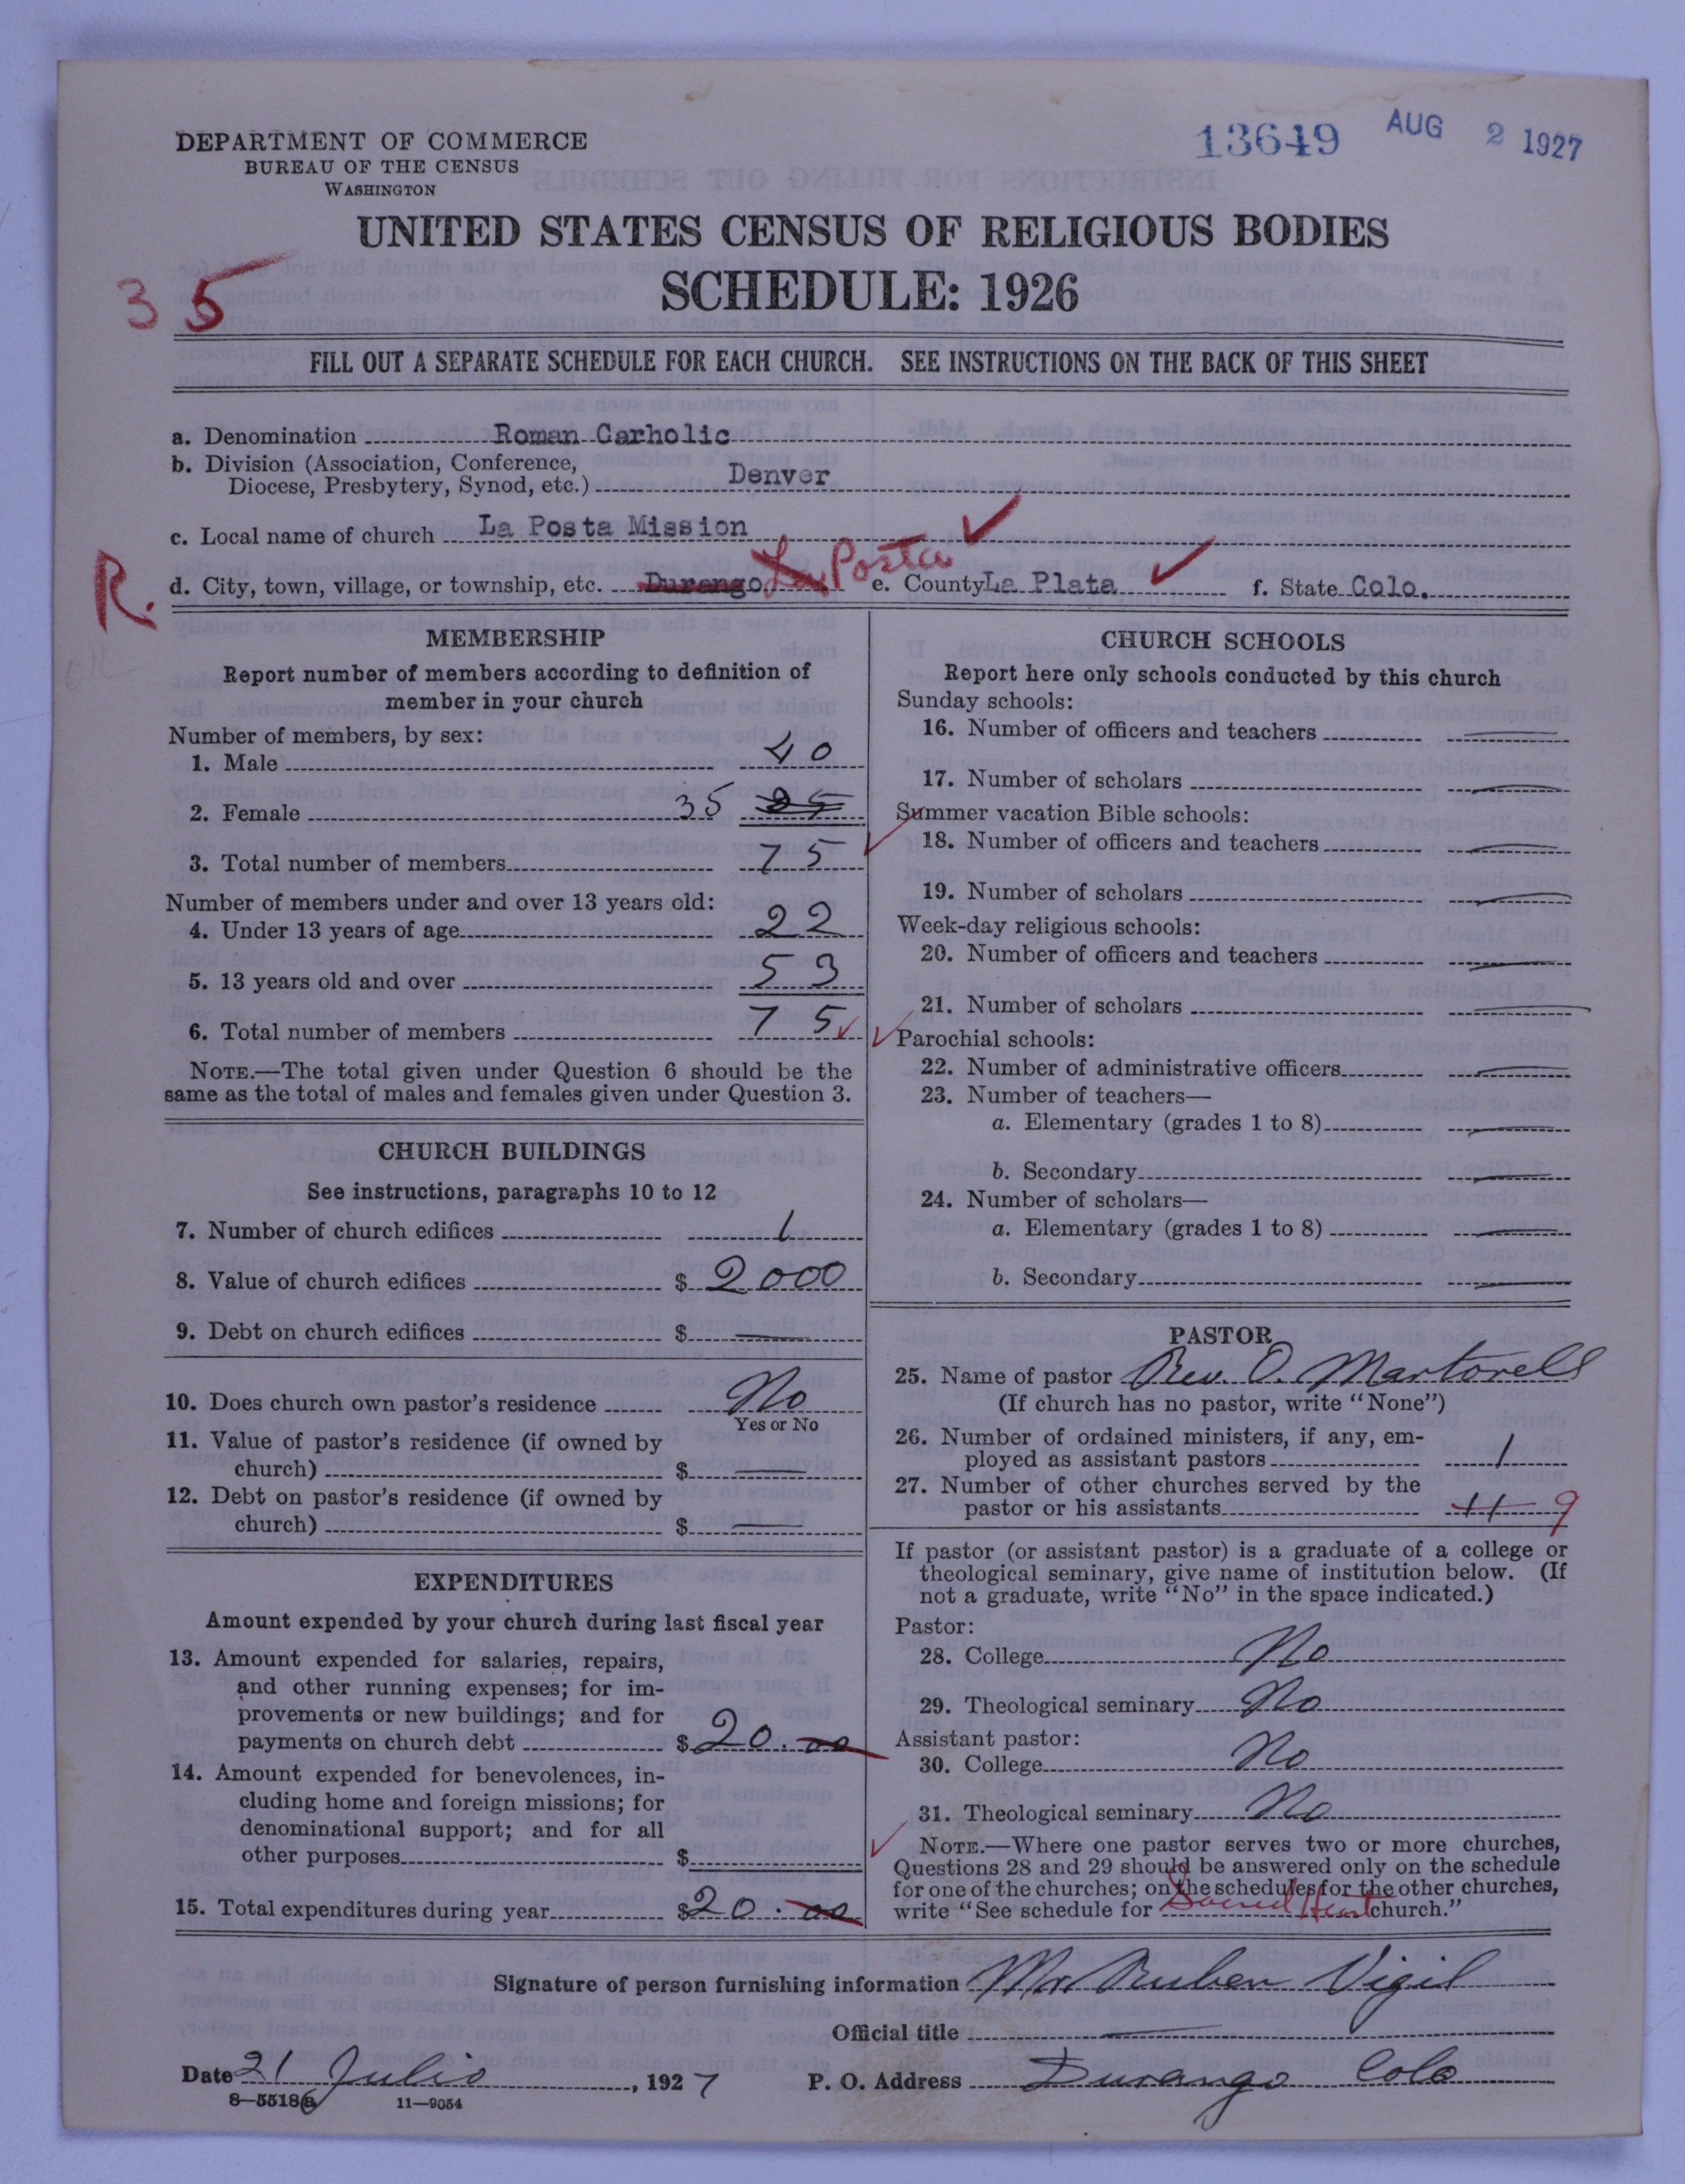 13649 AUG 2 1927
DEPARTMENT OF COMMERCE
BUREAU OF THE CENSUS
WASHINGTON
UNITED STATES CENSUS OF RELIGIOUS BODIES
SCHEDULE: 1926
35
FILL OUT A SEPARATE SCHEDULE FOR EACH CHURCH. SEE INSTRUCTIONS ON THE BACK OF THIS SHEET
a. Denomination Roman Carholic
b. Division (Association, Conference,
Diocese, Presbytery, Synod, etc.) Denver
c. Local name of church La Posta Mission
R. d. City, town, village, or township, etc. Durango La Posta e. County La Plata f. State Colo.
MEMBERSHIP
Report number of members according to definition of
member in your church
Number of members, by sex:
1. Male 40
2. Female 35
3. Total number of members 75
Number of members under and over 13 years old:
4. Under 13 years of age 22
5. 13 years old and over 53
6. Total number of members 75
NOTE.—The total given under Question 6 should be the
same as the total of males and females given under Question 3.
CHURCH BUILDINGS
See instructions, paragraphs 10 to 12
7. Number of church edifices 1
8. Value of church edifices $ 2000
9. Debt on church edifices $ —
10. Does church own pastor's residence No
Yes or No
11. Value of pastor's residence (if owned by
church) $ —
12. Debt on pastor's residence (if owned by
church) $ —
EXPENDITURES
Amount expended by your church during last fiscal year
13. Amount expended for salaries, repairs,
and other running expenses; for im-
provements or new buildings; and for
payments on church debt $ 20.00
14. Amount expended for benevolences, in-
cluding home and foreign missions; for
denominational support; and for all
other purposes $
15. Total expenditures during year $ 20.00
CHURCH SCHOOLS
Report here only schools conducted by this church
Sunday schools:
16. Number of officers and teachers —
17. Number of scholars —
Summer vacation Bible schools:
18. Number of officers and teachers —
19. Number of scholars —
Week-day religious schools:
20. Number of officers and teachers —
21. Number of scholars —
Parochial schools:
22. Number of administrative officers —
23. Number of teachers—
a. Elementary (grades 1 to 8) —
b. Secondary —
24. Number of scholars—
a. Elementary (grades 1 to 8) —
b. Secondary —
PASTOR
25. Name of pastor Rev. O. Martorell
(If church has no pastor, write "None")
26. Number of ordained ministers, if any, em-
ployed as assistant pastors 1
27. Number of other churches served by the
pastor or his assistants 11 9
If pastor (or assistant pastor) is a graduate of a college or
theological seminary, give name of institution below. (If
not a graduate, write "No" in the space indicated.)
Pastor:
28. College No
29. Theological seminary No
Assistant pastor:
30. College No
31. Theological seminary No
NOTE.—Where one pastor serves two or more churches,
Questions 28 and 29 should be answered only on the schedule
for one of the churches; on the schedules for the other churches,
write "See schedule for Sacred Heart church."
Signature of person furnishing information Mr Ruben Vigil
Official title —
Date 21 Julio, 1927 P. O. Address Durango Colo
8—5518a 11—9054